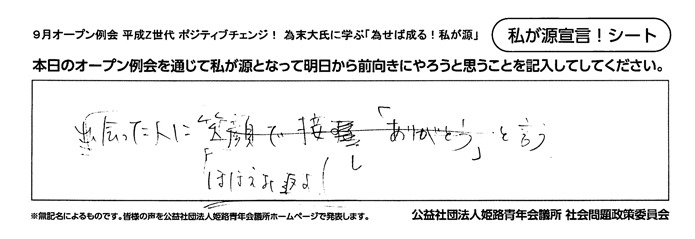 9月オープン例会 平成Z世代 ポジティブチェンジ! 為末大氏に学ぶ「為せば成る!私が源」
私が源宣言!シート
本日のオープン例会を通じて私が源となって明日から前向きにやろうと思うことを記入してしてください。
出会った人に笑顔で接し「ありがとう」と言う
※無記名によるものです。皆様の声を公益社団法人姫路青年会議所ホームページで発表します。
公益社団法人姫路青年会議所 社会問題政策委員会